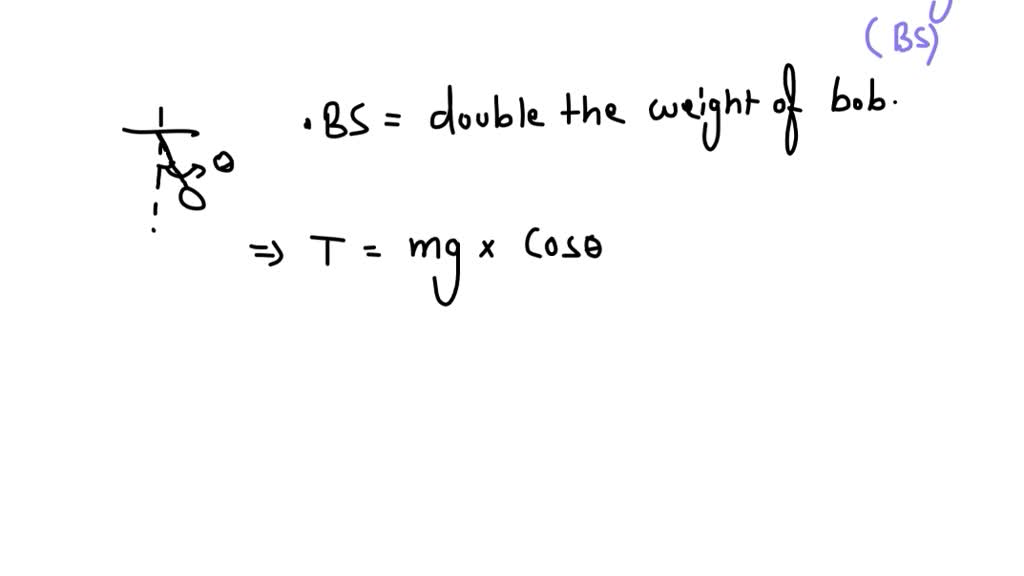 (BS)
. BS = double the weight of bob.
θ
⇒ T = mg × Cosθ